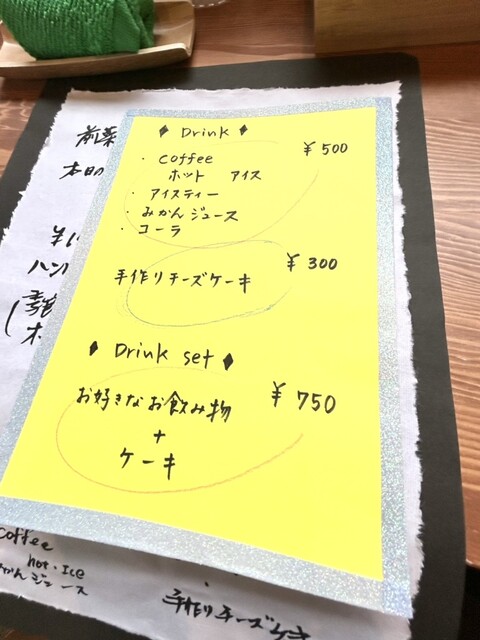 ♦ Drink ♦
¥500
・coffee
ホット アイス
・アイスティー
・みかんジュース
・コーラ
手作りチーズケーキ ¥300
♦ Drink set ♦
お好きなお飲み物 ¥750
+
ケーキ
前菜
本日の
ハン
coffee
hot・Ice
かんジュース
手作りチーズケーキ